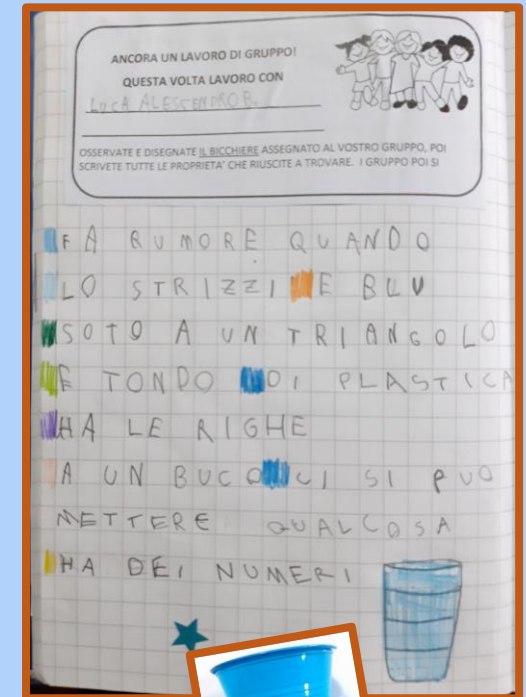 ANCORA UN LAVORO DI GRUPPO!
QUESTA VOLTA LAVORO CON
LUCA ALESSENDRO B.
OSSERVATE E DISEGNATE IL BICCHIERE ASSEGNATO AL VOSTRO GRUPPO, POI
SCRIVETE TUTTE LE PROPRIETA' CHE RIUSCITE A TROVARE. I GRUPPO POI SI
FA RUMORE QUANDO
LO STRIZZI E BLU
SOTO A UN TRIANGOLO
E TONDO DI PLASTICA
HA LE RIGHE
A UN BUCO CI SI PUO
METTERE QUALCOSA
HA DEI NUMERI